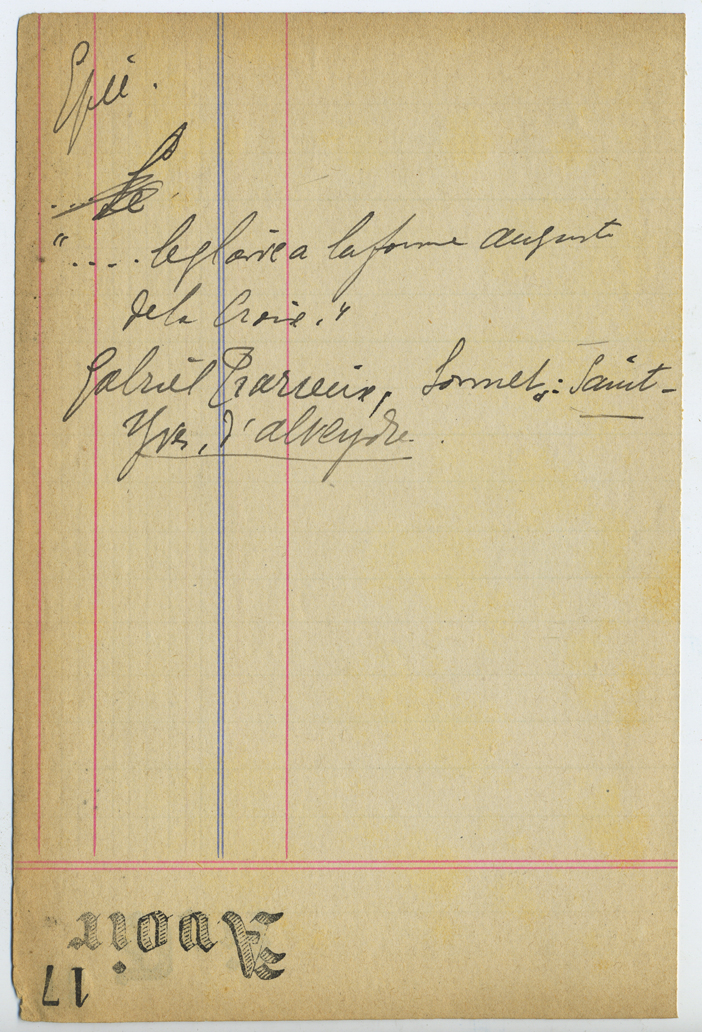 Epée.
".... le glaive a la forme auguste
de la Croix."
Gabriel Trarieux, Sonnet : Saint-
Yves, d'alveydre.
Avoir
17